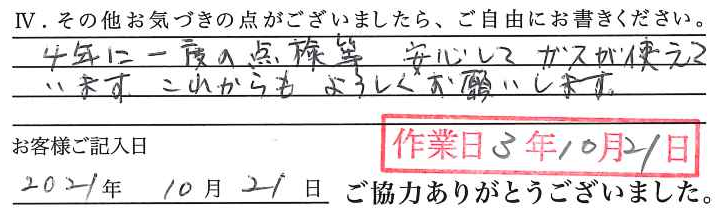 Ⅳ．その他お気づきの点がございましたら、ご自由にお書きください。
4年に一度の点検等 安心して ガスが使えて
います。これからも よろしくお願いします。
作業日3年10月21日
お客様ご記入日
2021年 10月 21日 ご協力ありがとうございました。